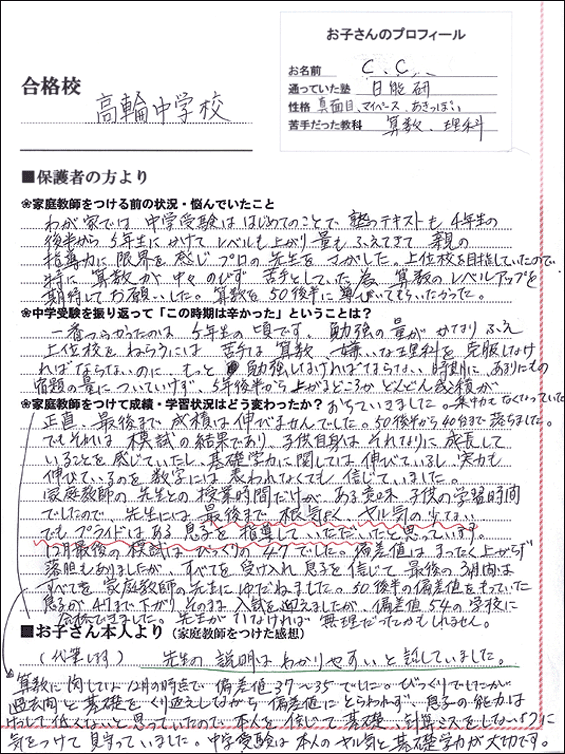 合格校
高輪中学校
お子さんのプロフィール
お名前 C. C.
通っていた塾 日能研
性格 真面目、マイペース、あきっぽい
苦手だった教科 算数、理科
■保護者の方より
❀家庭教師をつける前の状況・悩んでいたこと
わが家では中学受験ははじめてのことで、塾のテキストも4年生の
後半から5年生にかけてレベルも上がり量もふえてきて親の
指導力に限界を感じプロの先生をさがした。上位校を目指していたので、
特に算数が中々のびず苦手としていた為 算数のレベルアップを
期待してお願いした。算数を50後半に運んでもらいたかった。
❀中学受験を振り返って「この時期は辛かった」ということは?
一番つらかったのは5年生の頃です。勉強の量がかなりふえ
上位校をねらうには苦手な算数、嫌いな理科を克服しなけ
ればならないのに、もっと勉強しなければならない時期に、あまりもの
宿題の量についていけず、5年後半から上がるどころかどんどん成績が
おちていきました。集中力もなくなっていた
❀家庭教師をつけて成績・学習状況はどう変わったか?
正直、最後まで成績は伸びませんでした。50後半から40台まで落ちました。
でもそれは模試の結果であり、子供自身はそれなりに成長して
いることを感じていたし、基礎学力に関しては伸びているし、実力も
伸びているのを数字には表われなくても信じていました。
家庭教師の先生との授業時間だけが、ある意味子供の学習時間
でしたので、先生には最後まで根気よく、ヤル気の少ない
でもプライドはある息子を指導していただいたと思っています。
12月最後の模試はびっくりの47でした。偏差値はまったく上がらず
落胆もありましたが、すべてを受け入れ息子を信じて最後の3月間は
すべてを家庭教師の先生にゆだねました。50後半の偏差値をもっていた
息子が47まで下がりそのまま入試を迎えましたが、偏差値54の学校に
合格できました。先生がいなければ無理だったかもしれません。
■お子さん本人より(家庭教師をつけた感想)
(代筆します) 先生の説明はわかりやすいと話していました。
算数に関しては12月の時点で偏差値37~35でした。びっくりでしたが
過去問と基礎をくり返しながら偏差値にとらわれず、息子の能力は
けして低くないと思っていたので、本人を信じて基礎、計算ミスをしないように
気をつけて見守っていました。中学受験は本人のヤル気と基礎学力が大切です。